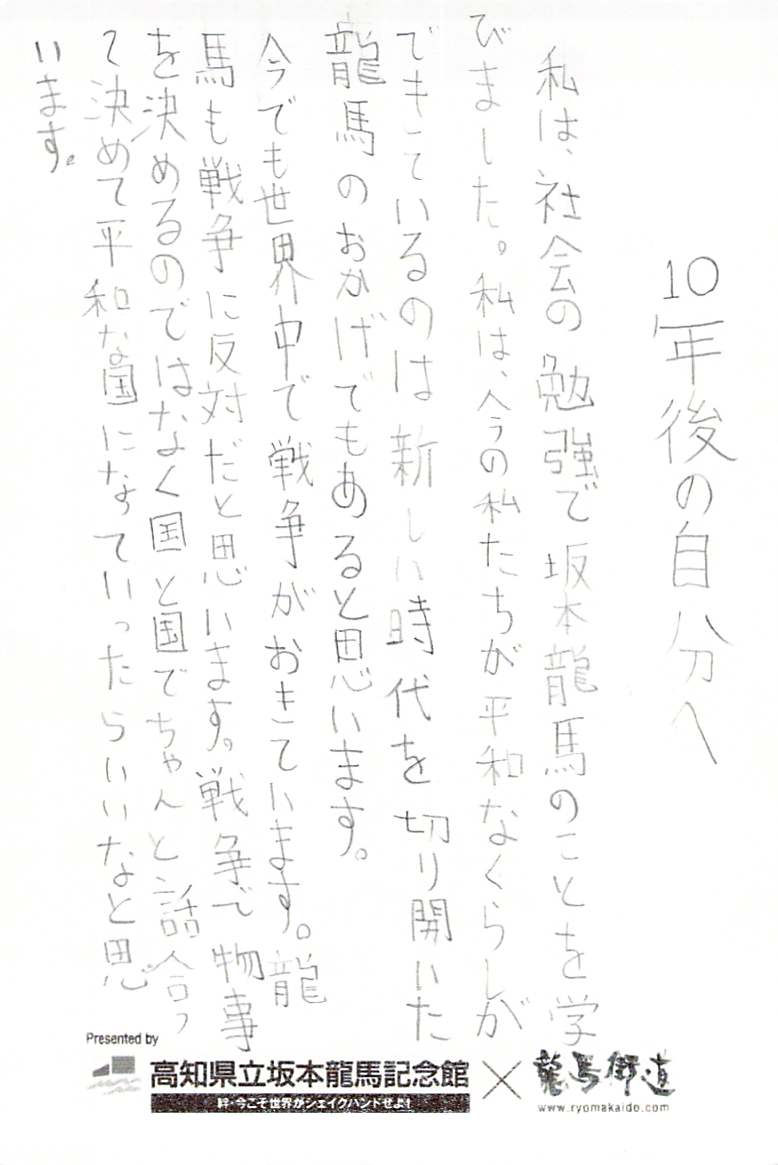 10年後の自分へ
私は、社会の勉強で坂本龍馬のことを学
びました。私は、今の私たちが平和なくらしが
できているのは新しい時代を切り開いた
龍馬のおかげでもあると思います。
今でも世界中で戦争がおきています。龍
馬も戦争に反対だと思います。戦争で物事
を決めるのではなく国と国でちゃんと話合っ
て決めて平和な国になっていったらいいなと思
います。
Presented by
高知県立坂本龍馬記念館×龍馬街道
絆・今こそ世界がシェイクハンドせよ!
www.ryomakaido.com